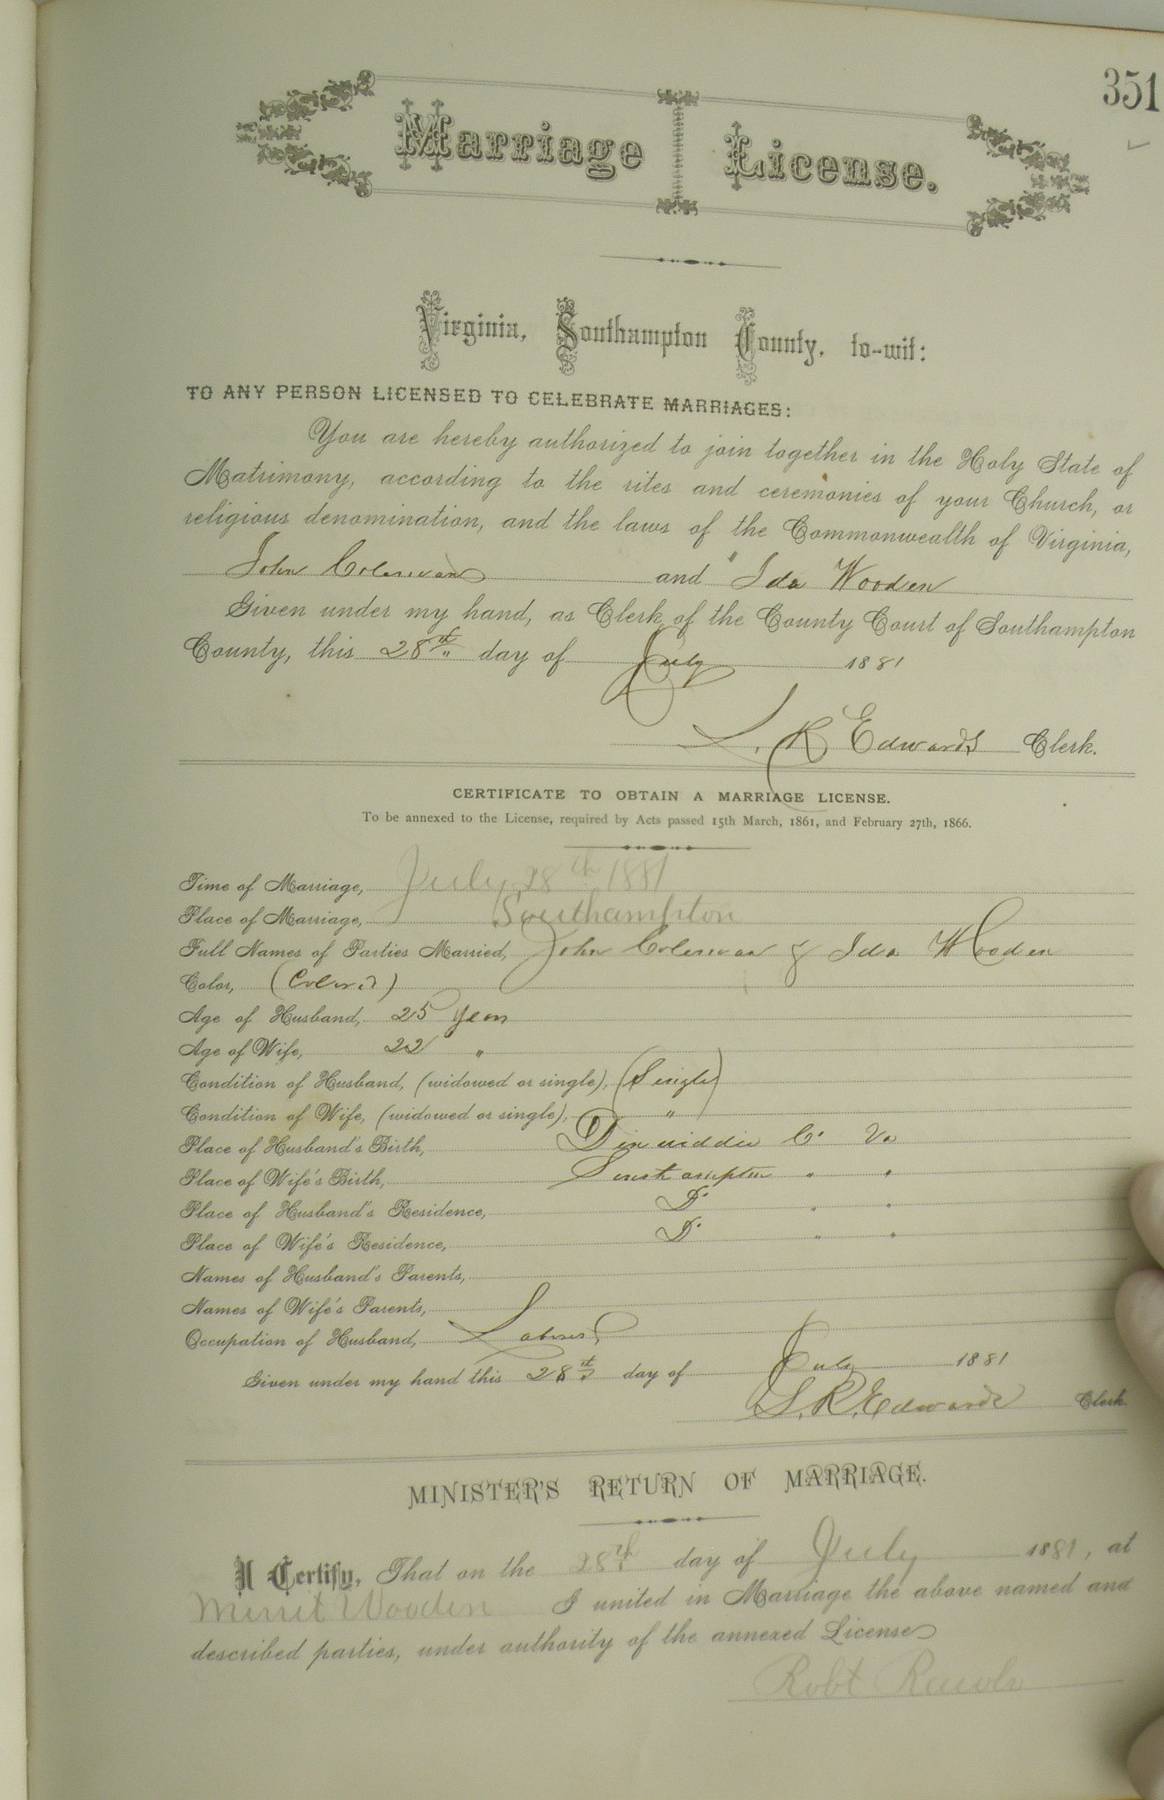 351
Marriage License.
Virginia, Southampton County, to-wit:
TO ANY PERSON LICENSED TO CELEBRATE MARRIAGES:
You are hereby authorized to join together in the Holy State of
Matrimony, according to the rites and ceremonies of your Church, or
religious denomination, and the laws of the Commonwealth of Virginia,
John Coleman and Ida Wooden
Given under my hand, as Clerk of the County Court of Southampton
County, this 28th day of July 1881
L. R. Edwards Clerk.
CERTIFICATE TO OBTAIN A MARRIAGE LICENSE.
To be annexed to the License, required by Acts passed 15th March, 1861, and February 27th, 1866.
Time of Marriage, July 28th 1881
Place of Marriage, Southampton
Full Names of Parties Married, John Coleman & Ida Wooden
Color, (Colored)
Age of Husband, 25 Years
Age of Wife, 22 "
Condition of Husband, (widowed or single), (Single)
Condition of Wife, (widowed or single), "
Place of Husband's Birth, Dinwiddie Co Va
Place of Wife's Birth, Southampton " "
Place of Husband's Residence, Do " "
Place of Wife's Residence, Do " "
Names of Husband's Parents,
Names of Wife's Parents,
Occupation of Husband, Laborer
Given under my hand this 28th day of July 1881
L. R. Edwards Clerk.
MINISTER'S RETURN OF MARRIAGE.
I Certify, That on the 28th day of July 1881, at
Merrit Wooden I united in Marriage the above named and
described parties, under authority of the annexed License
Robt